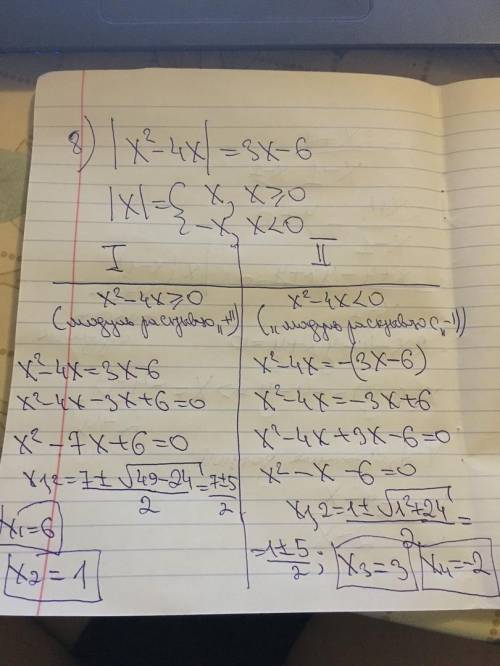 8) |x²-4x| = 3x-6
|x| = { x, x≥0
{ -x, x<0
I
x²-4x≥0
(модуль раскрываю „+")
x²-4x=3x-6
x²-4x-3x+6=0
x²-7x+6=0
x1,2=7±√49-24/2=7±5/2
x1=6
x2=1
II
x²-4x<0
(„модуль раскрываю с„-"))
x²-4x=-(3x-6)
x²-4x=-3x+6
x²-4x+3x-6=0
x²-x-6=0
x1,2=1±√1²+24/2=
=1±5/2; x3=3 x4=-2